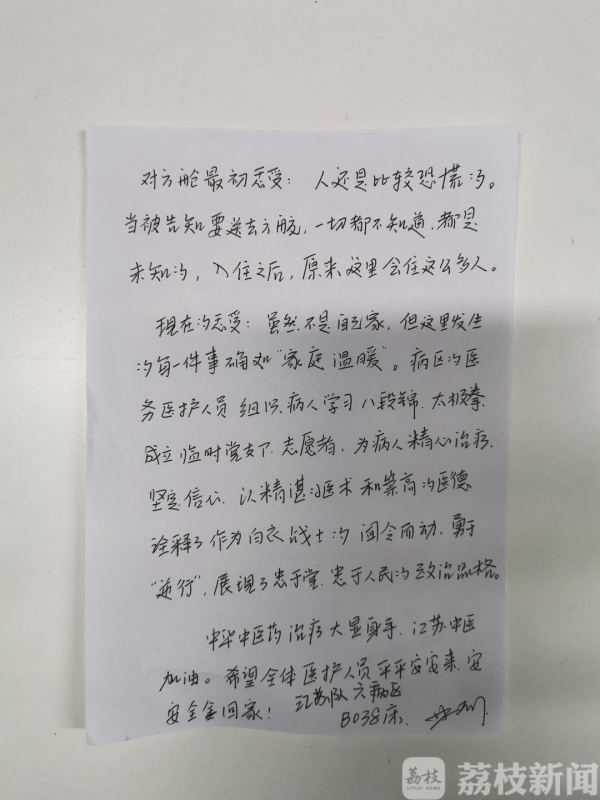 对方舱最初感受：人还是比较恐慌的。
当被告知要送去方舱，一切都不知道，都是
未知的，入住之后，原来这里会住这么多人。
现在的感受：虽然不是自己家，但这里发生
的每一件事确如“家庭温暖”。病区的医
务医护人员组织病人学习八段锦、太极拳、
成立临时党支下、志愿者，为病人精心治疗、
坚定信心、以精湛的医术和崇高的医德
诠释了作为白衣战士的闻令而动、勇于
“逆行”，展现了忠于党、忠于人民的政治品格。
中华中医药治疗大显身手、江苏中医
加油。希望全体医护人员平平安安来、安
安全全回家！
江苏队六病区
B038床、
荔枝
LITCHI NEWS
荔枝新闻